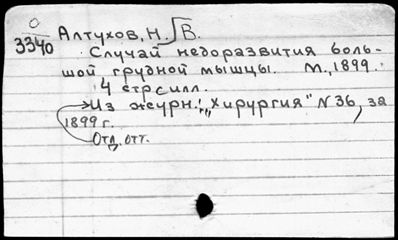 0
3340 Алтухов, Н. В.
Случай недоразвития боль-
шой грудной мышцы. М., 1899.
4 стр с илл.
Из журн.: „Хирургия" N 36, за
1899 г.
Отд. отт.